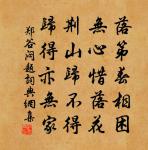 落第春相困
無心惜落花
荆山歸不得
歸得亦無家
郑谷闷题詞典網集